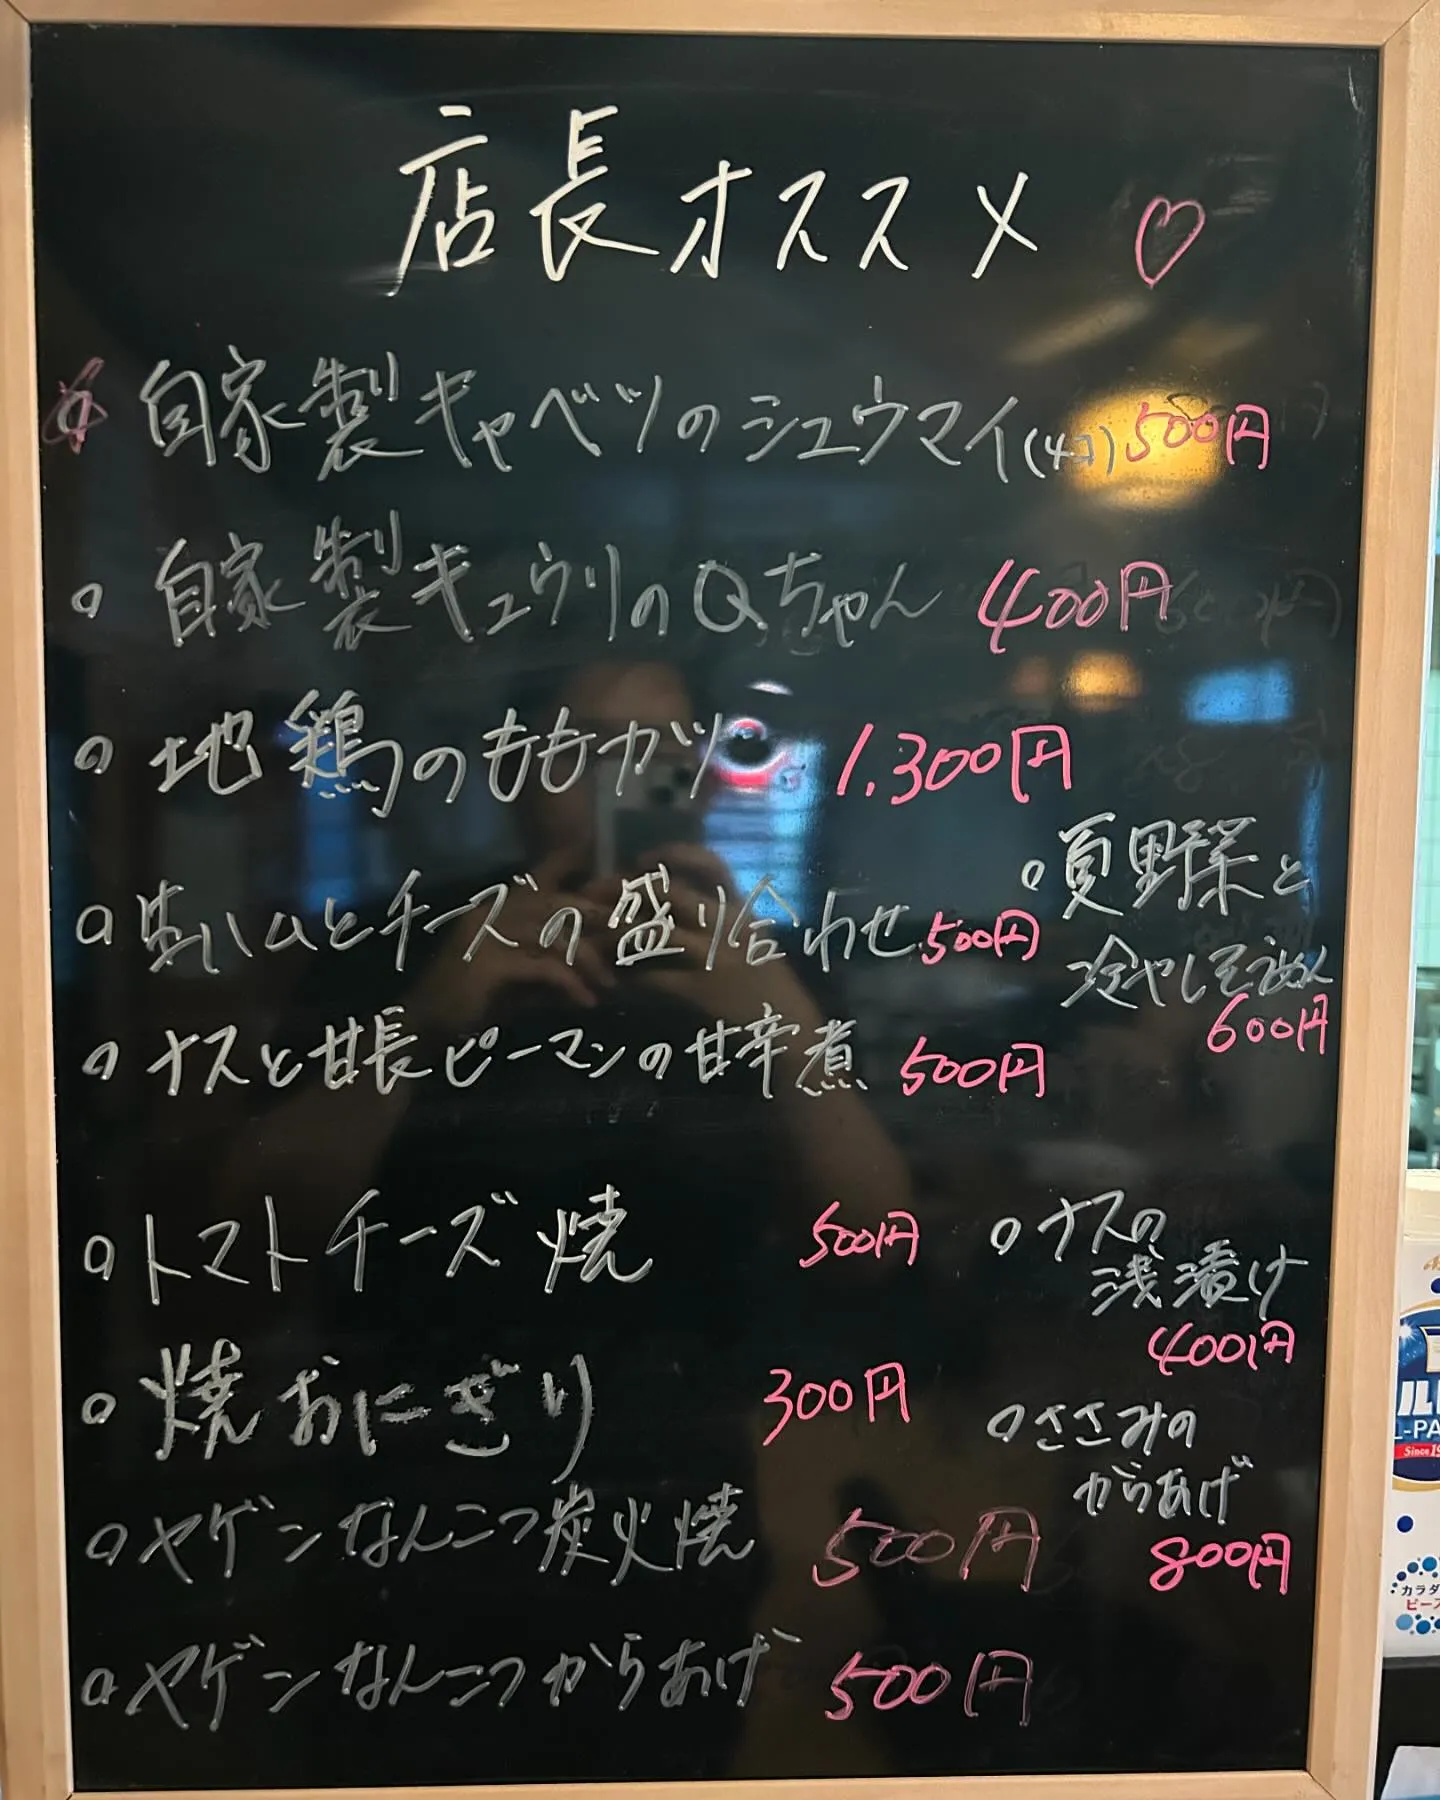 店長オススメ♡
自家製キャベツのシュウマイ(4コ) 500円
自家製キュウリのQちゃん 400円
地鶏のももカツ 1.300円
生ハムとチーズの盛り合わせ 500円
夏野菜と
冷やしそうめん
600円
ナスと甘長ピーマンの甘辛煮 500円
トマトチーズ焼 500円
ナスの
浅漬け
400円
焼おにぎり 300円
ささみの
からあげ
800円
ヤゲンなんこつ炭火焼 500円
ヤゲンなんこつからあげ 500円
カラダ